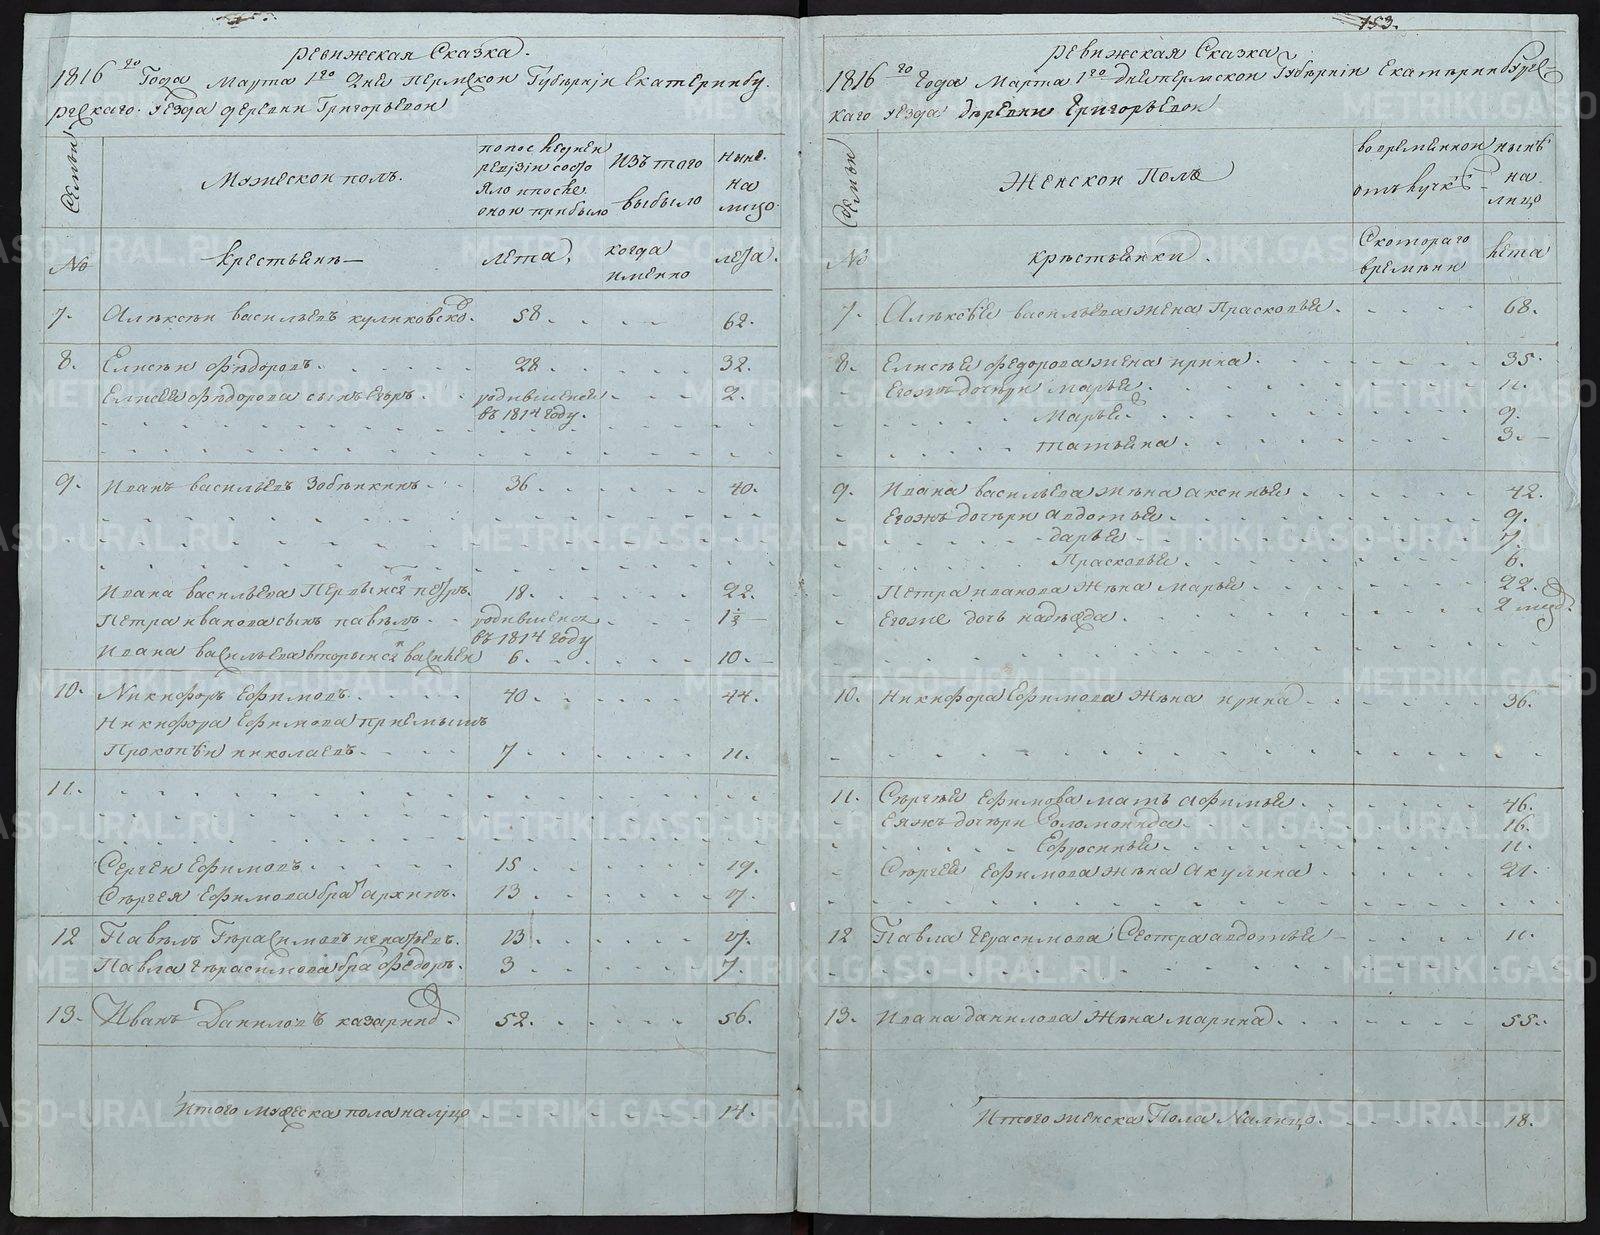 Ревижская Сказка.
1816го Года Марта 1го дня Пермской Губернiи Екатеринбу
ргскаго уезда деревни Григорьевой
Семьи
Мужеской полъ.
по последней
ревизiи состо
яло и после
оной прибыло
Изъ того
выбыло
Ныне
на
лицо.
№
крестьянъ
лета,
когда
именно
лета.
7. Алексеи васильевъ куликовской. 58. 62.
8. Елисеи Федоровъ. 28. 32.
Елисея Федорова сынъ егоръ. родившейся 2.
въ 1814 году.
9. Иванъ васильевъ Зобнинкинъ. 36. 40.
Ивана васильева Первый сынъ петръ. 18. 22.
Петра иванова сынъ павелъ родившейся 1½
въ 1814 году
Ивана васильева вторый сынъ василей 6. 10.
10. Никифоръ Ефимовъ. 40. 44.
Никифора Ефимова приемышъ
Прокопеи николаевъ 7. 11.
11.
Сергеи Ефимовъ. 15 19.
Сергея Ефимова братъ архипъ. 13. 17.
12 Павелъ Герасимовъ игнатьевъ. 13. 17.
Павла Герасимова братъ Федоръ. 3 7.
13. Иванъ Даниловъ казаринъ. 52. 56.
Итого мужеска пола налицо 14.
153.
Ревижская Сказка
1816го Года Марта 1го дня пермской Губернiи Екатеринбургс
каго уезда деревни Григорьевой
Семьи
Женской Полъ
во временной
отлучкѣ
нынѣ
на
лицо
№
крестьянки.
Скотораго
времѣни
лета
7. Алексея васильева жена Прасковья. 68.
8. Елисея федорова жена ирина. 35.
Егожъ дочери марья. 11.
Марья 9.
татьяна. 3.
9. Ивана васильева жена аксинья. 42.
Егожъ дочери авдотья 9.
дарья 7.
Прасковья 6.
Петра иванова жена марья 22.
Егоже дочь надежда. 2 мцъ.
10. Никифора Ефимова жена ирина 36.
11. Сергея Ефимова мать афимья. 46.
Еяжъ дочери Соломонида. 16.
Ефросинья. 11.
Сергея Ефимова жена Акулина 21.
12 Павла Герасимова Сестра авдотья 11.
13. Ивана данилова жена марина 55.
Итого женска Пола Налицо 18.
METRIKI.GASO-URAL.RU